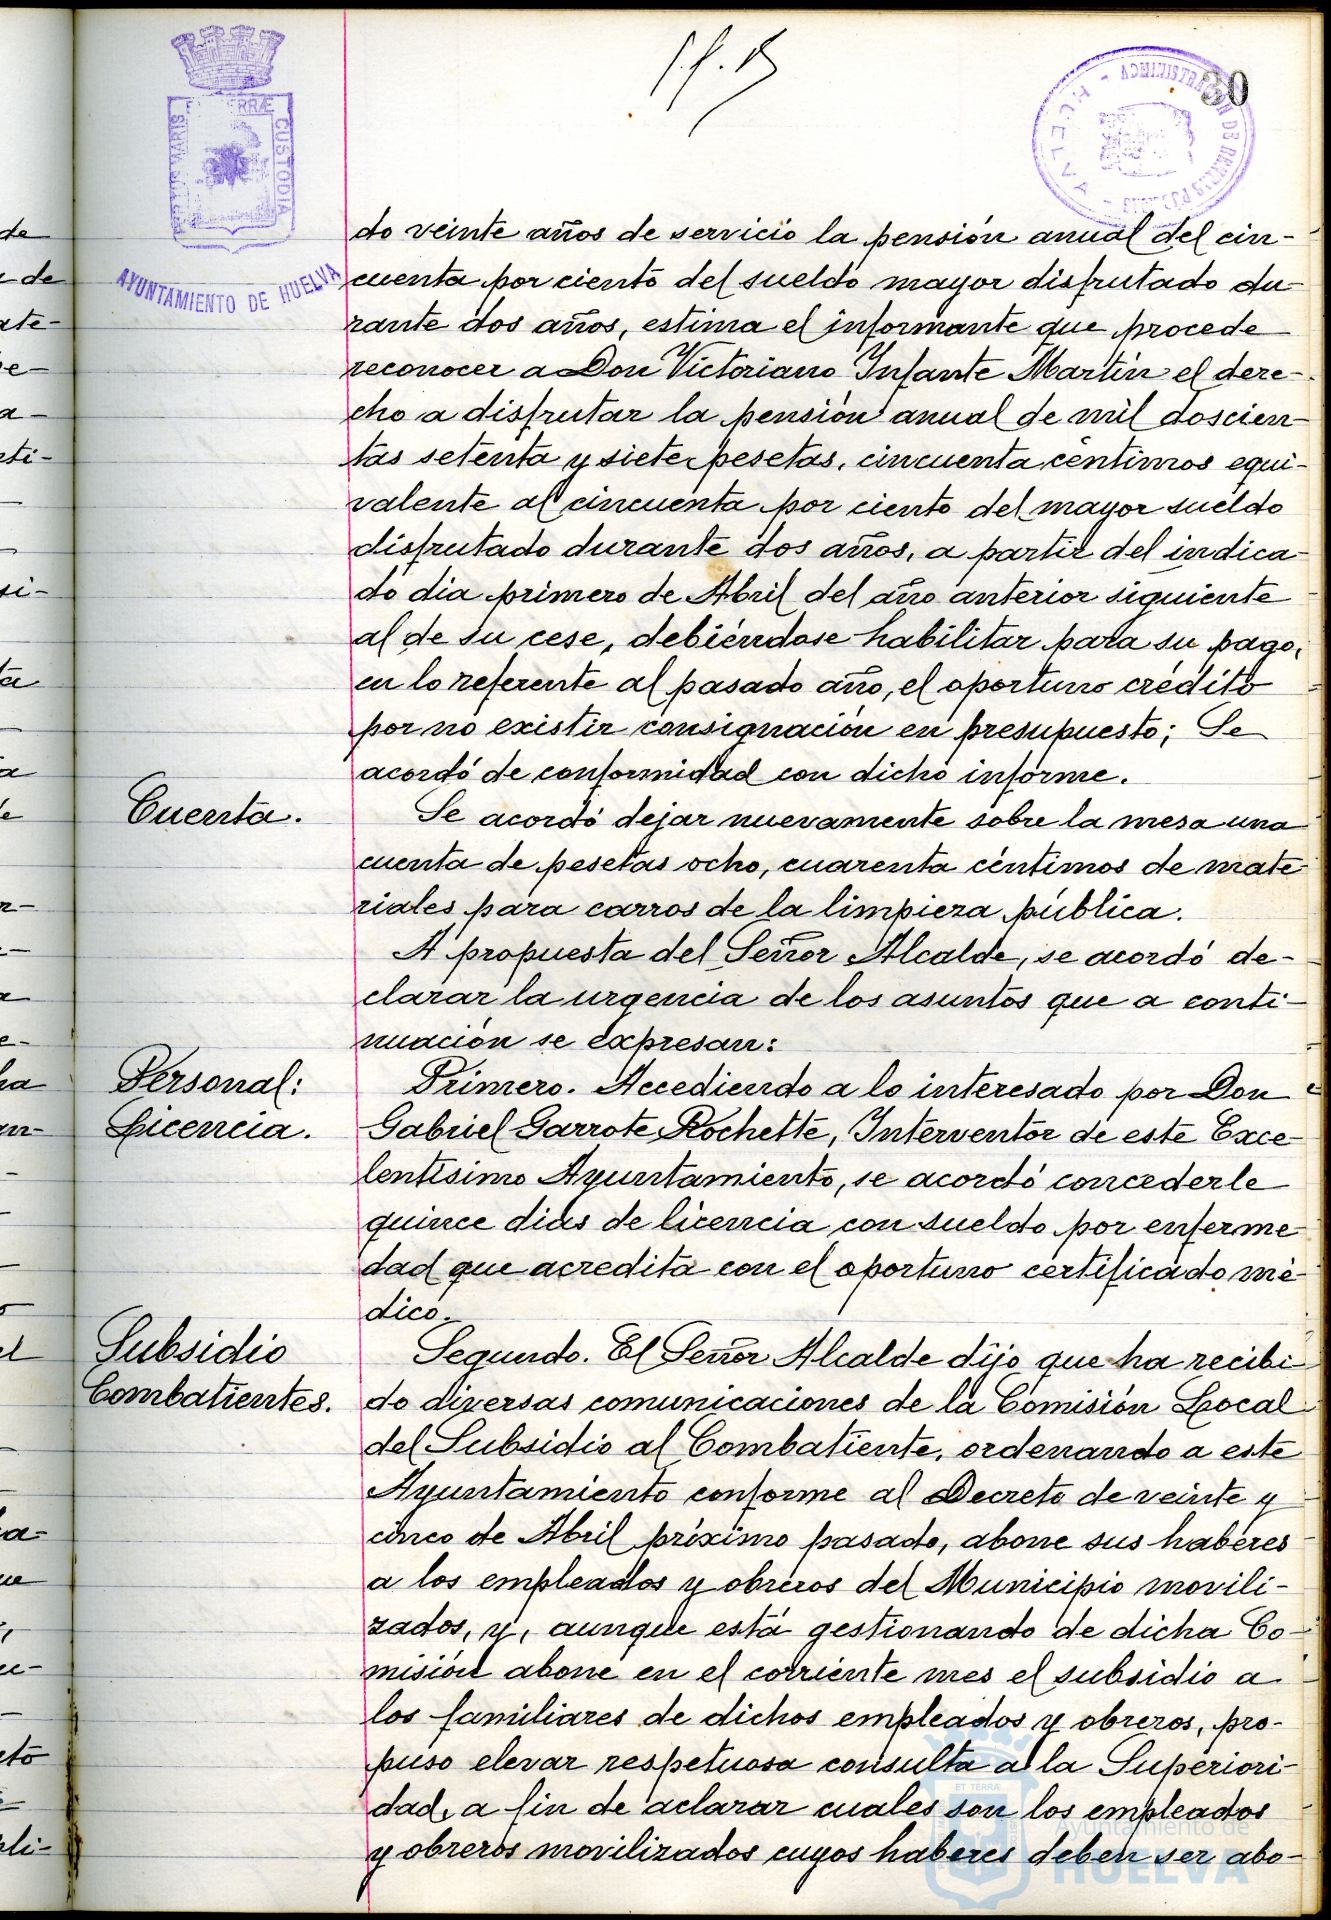 30
AYUNTAMIENTO DE HUELVA
CUSTODIA
do veinte años de servicio la pensión anual del cin-
cuenta por ciento del sueldo mayor disfrutado du-
rante dos años, estima el informante que procede
reconocer a Don Victoriano Infante Martín el dere-
cho a disfrutar la pensión anual de mil doscien-
tas setenta y siete pesetas, cincuenta céntimos equi-
valente al cincuenta por ciento del mayor sueldo
disfrutado durante dos años, a partir del indica-
do dia primero de Abril del año anterior siguiente
al de su cese, debiéndose habilitar para su pago,
en lo referente al pasado año, el oportuno crédito
por no existir consignación en presupuesto; Se
acordó de conformidad con dicho informe.
Cuenta.
Se acordó dejar nuevamente sobre la mesa una
cuenta de pesetas ocho, cuarenta céntimos de mate-
riales para carros de la limpieza pública.
A propuesta del Señor Alcalde, se acordó de-
clarar la urgencia de los asuntos que a conti-
nuación se expresan:
Personal:
Licencia.
Primero. Accediendo a lo interesado por Don
Gabriel Garrote Rochette, Interventor de este Exce-
lentísimo Ayuntamiento, se acordó concederle
quince dias de licencia con sueldo por enferme
dad que acredita con el oportuno certificado mé-
dico.
Subsidio
Combatientes.
Segundo. El Señor Alcalde dijo que ha recibi
do diversas comunicaciones de la Comisión Local
del Subsidio al Combatiente, ordenando a este
Ayuntamiento conforme al Decreto de veinte y
cinco de Abril próximo pasado, abone sus haberes
a los empleados y obreros del Municipio movili-
zados, y, aunque está gestionando de dicha Co-
misión abone en el corriente mes el subsidio a
los familiares de dichos empleados y obreros, pro-
puso elevar respetuosa consulta a la Superiori-
dad, a fin de aclarar cuales son los empleados
y obreros movilizados cuyos haberes deben ser abo-
Ayuntamiento de
HUELVA